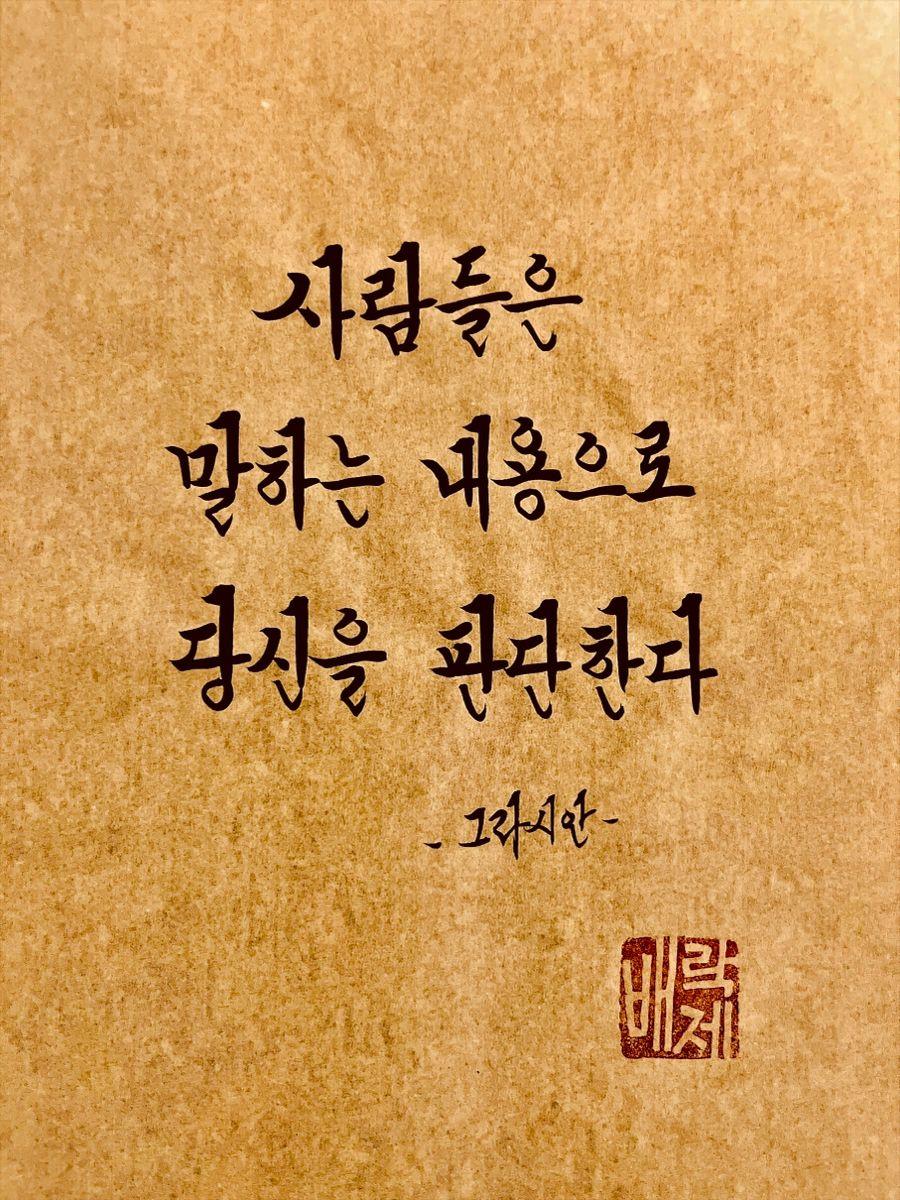 사람들은
말하는 내용으로
당신을 판단한다
- 그라시안 -
배락제